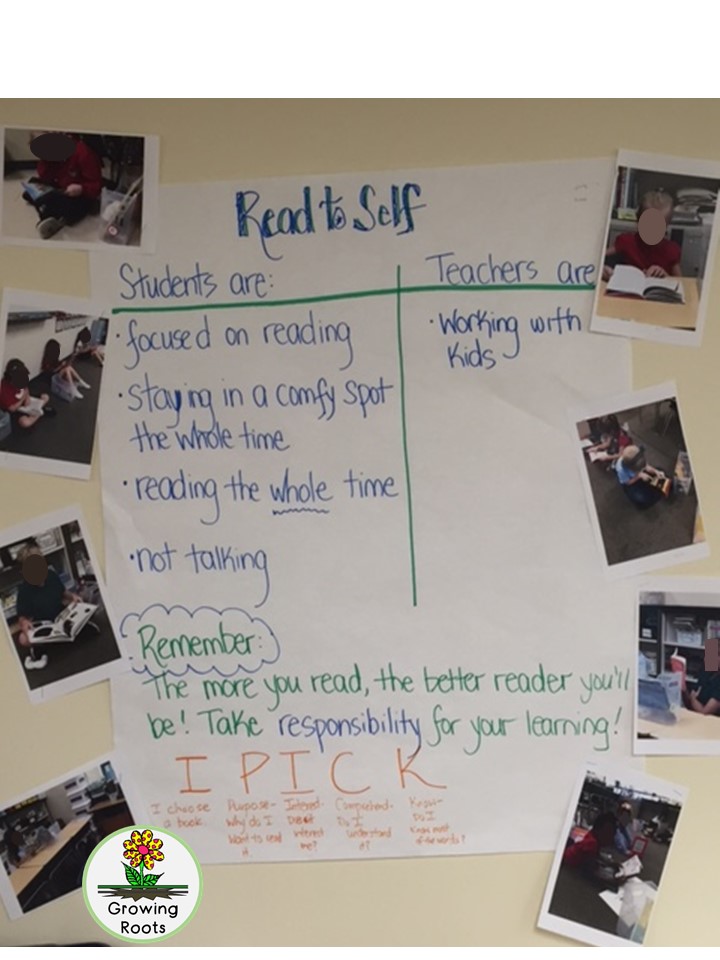 Read to Self
Students are:
Teachers are
·focused on reading
·Working with
Kids
·staying in a comfy spot
the whole time
·reading the whole time
·not talking
Remember:
The more you read, the better reader you'll
be! Take responsibility for your learning!
I PICK
I choose
a book.
Purpose-
Why do I
Want to read
it
Interest-
Does it
interest
me?
Comprehend-
Do I
understand
it?
Know-
Do I
Know most
of the words?
Growing
Roots